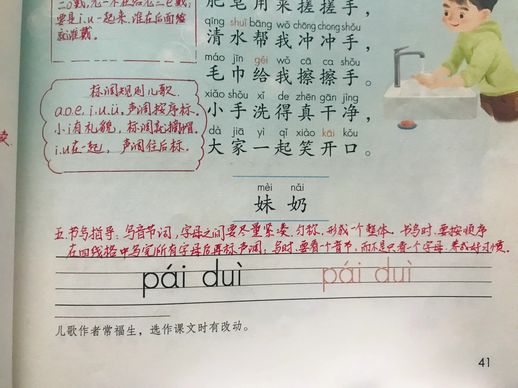 要是i、u一起来,谁在后面给
谁戴。
肥皂用来搓搓手,
qīng shuǐ bāng wǒ chōng chong shǒu
清水帮我冲冲手,
máo jīn gěi wǒ cā ca shǒu
毛巾给我擦擦手。
xiǎo shǒu xǐ de zhēn gān jìng
小手洗得真干净,
dà jiā yì qǐ xiào kāi kǒu
大家一起笑开口。
标调规则儿歌
a、o、e、i、u、ü,声调按序标。
小i有礼貌,标调就摘帽。
i、u在一起,声调住后标。
mèi nǎi
妹 奶
五、书写指导:写音节词,字母之间要尽量紧凑、匀称,形成一个整体。书写时,要按顺序
在四线格中写完所有字母后再标声调;写时,要看个音节,而不是只看个字母,养成好习惯。
pái duì pái duì
儿歌作者常福生,选作课文时有改动。
41